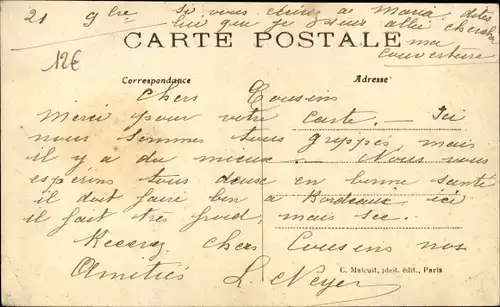 21 9bre Si vous écrivez a Maria dites
lui que je suis allé chercher
CARTE POSTALE
ma
couverture
12€
Correspondance
Adresse
Chers Cousins
Merci pour votre carte. — Ici
nous sommes tous grippés mais
il y a du mieux. — Nous vous
espérons tous deux en bonne santé
il doit faire bon a Bordeaux ici
il fait très froid, mais sec.
Recevez chers Cousins nos
Amitiés
C. Malcuit, phot. édit., Paris